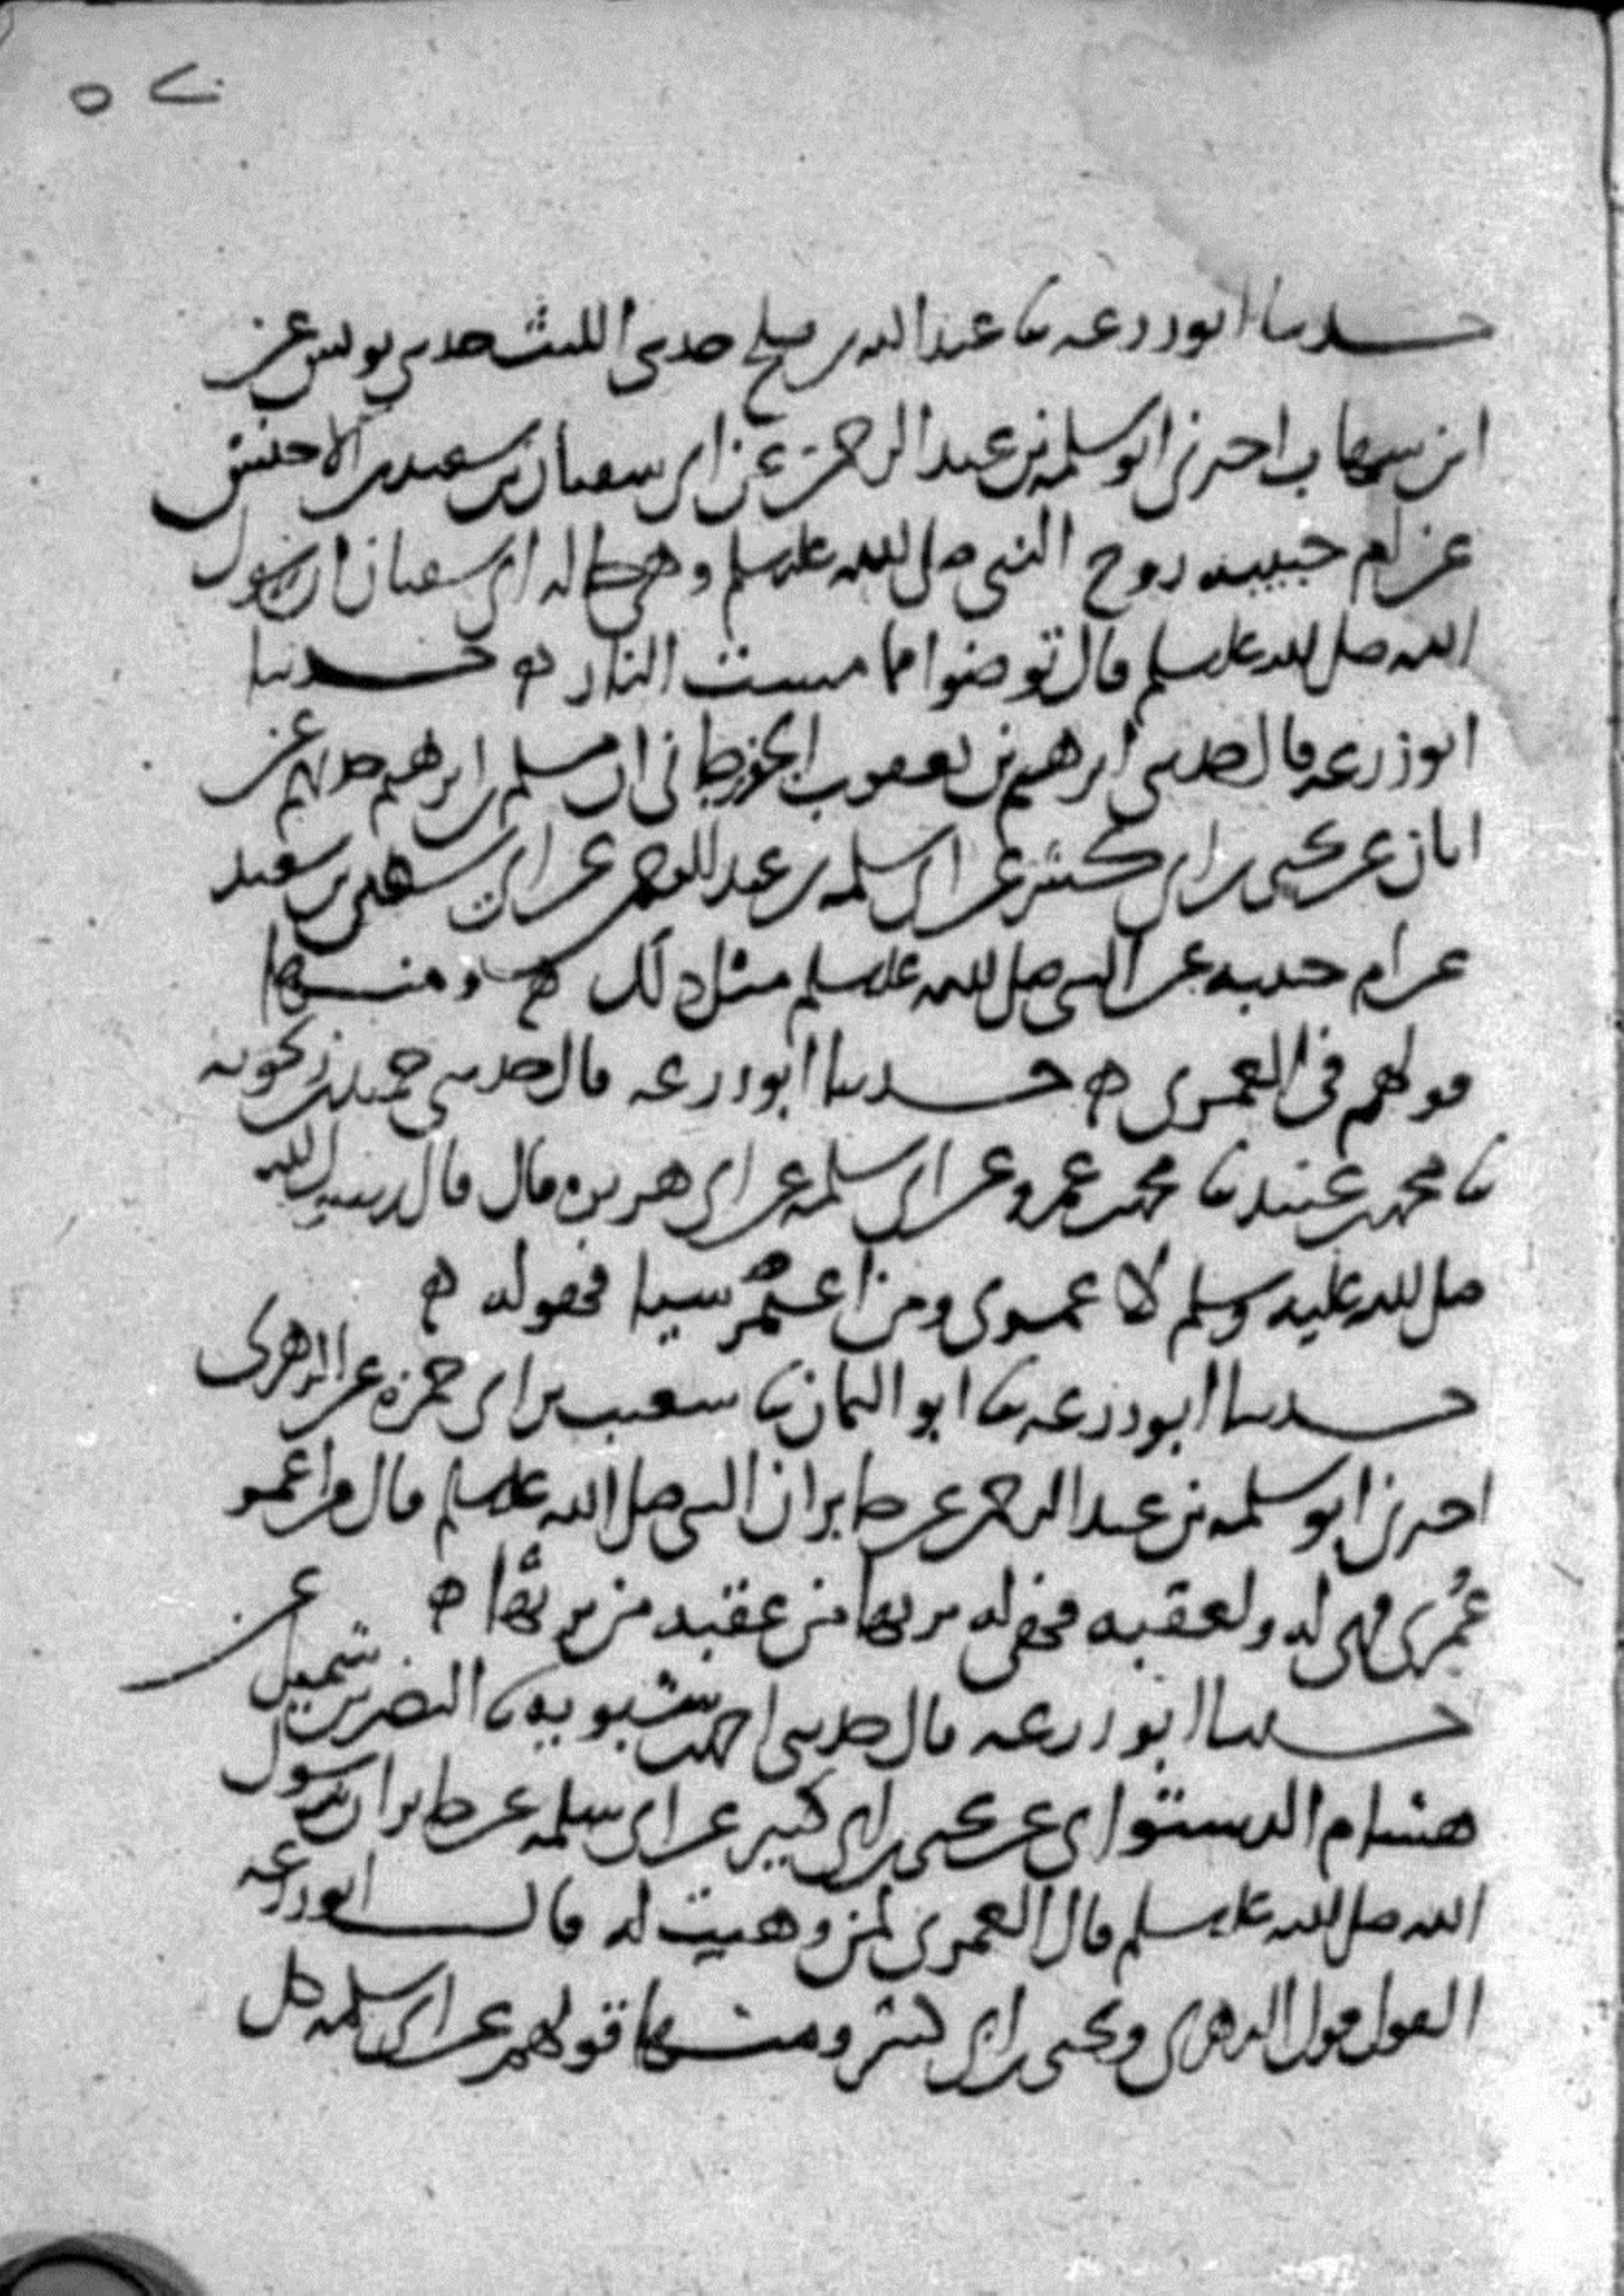 حدثنا ابو زرعه نا عبد الله بن صلح حدثني الليث حدثني يونس عن
ابن شهاب اخبرني ابو سلمه بن عبد الرحمن عن ابي سفيان بن سعيد بن الاخنس
عن ام حبيبه زوج النبي صلى الله عليه وسلم وهي خاله ابي سفيان ان رسول
الله صلى الله عليه وسلم قال توضوا مما مست النار ه حدثنا
ابو زرعه قال حدثني ابرهيم بن يعقوب الجوزجاني ان مسلم بن ابرهيم حدثهم عن
ابان عن يحيى بن ابي كثير عن ابي سلمه بن عبد الرحمن عن ابي سفين بن سعيد
عن ام حبيبه عن النبي صلى الله عليه وسلم مثل ذلك ه ومنها
قولهم في العمرى ه حدثنا ابو زرعه قال حدثني حميد بن زنجويه
نا محمد بن عبيد نا محمد بن عمرو عن ابي سلمه عن ابي هريره قال قال رسول الله
صلى الله عليه وسلم لا عمرى ومن اعمر شيا فهو له ه
حدثنا ابو زرعه نا ابو اليمان نا شعيب بن ابي حمزه عن الزهري
اخبرني ابو سلمه بن عبد الرحمن عن جابر ان النبي صلى الله عليه وسلم قال من اعمر
عُمرى فهي له ولعقبه فهي له يرثها من عقبه من يرثها ه
حدثنا ابو زرعه قال حدثني احمد بن شبويه نا النضر بن شميل عن
هشام الدستوائي عن يحيى بن ابي كثير عن ابي سلمه عن جابر ان رسول
الله صلى الله عليه وسلم قال العمرى لمن وهبت له قال ابو زرعه
القول قول الزهري ويحيى بن ابي كثير ومنها قولهم عن ابي سلمه